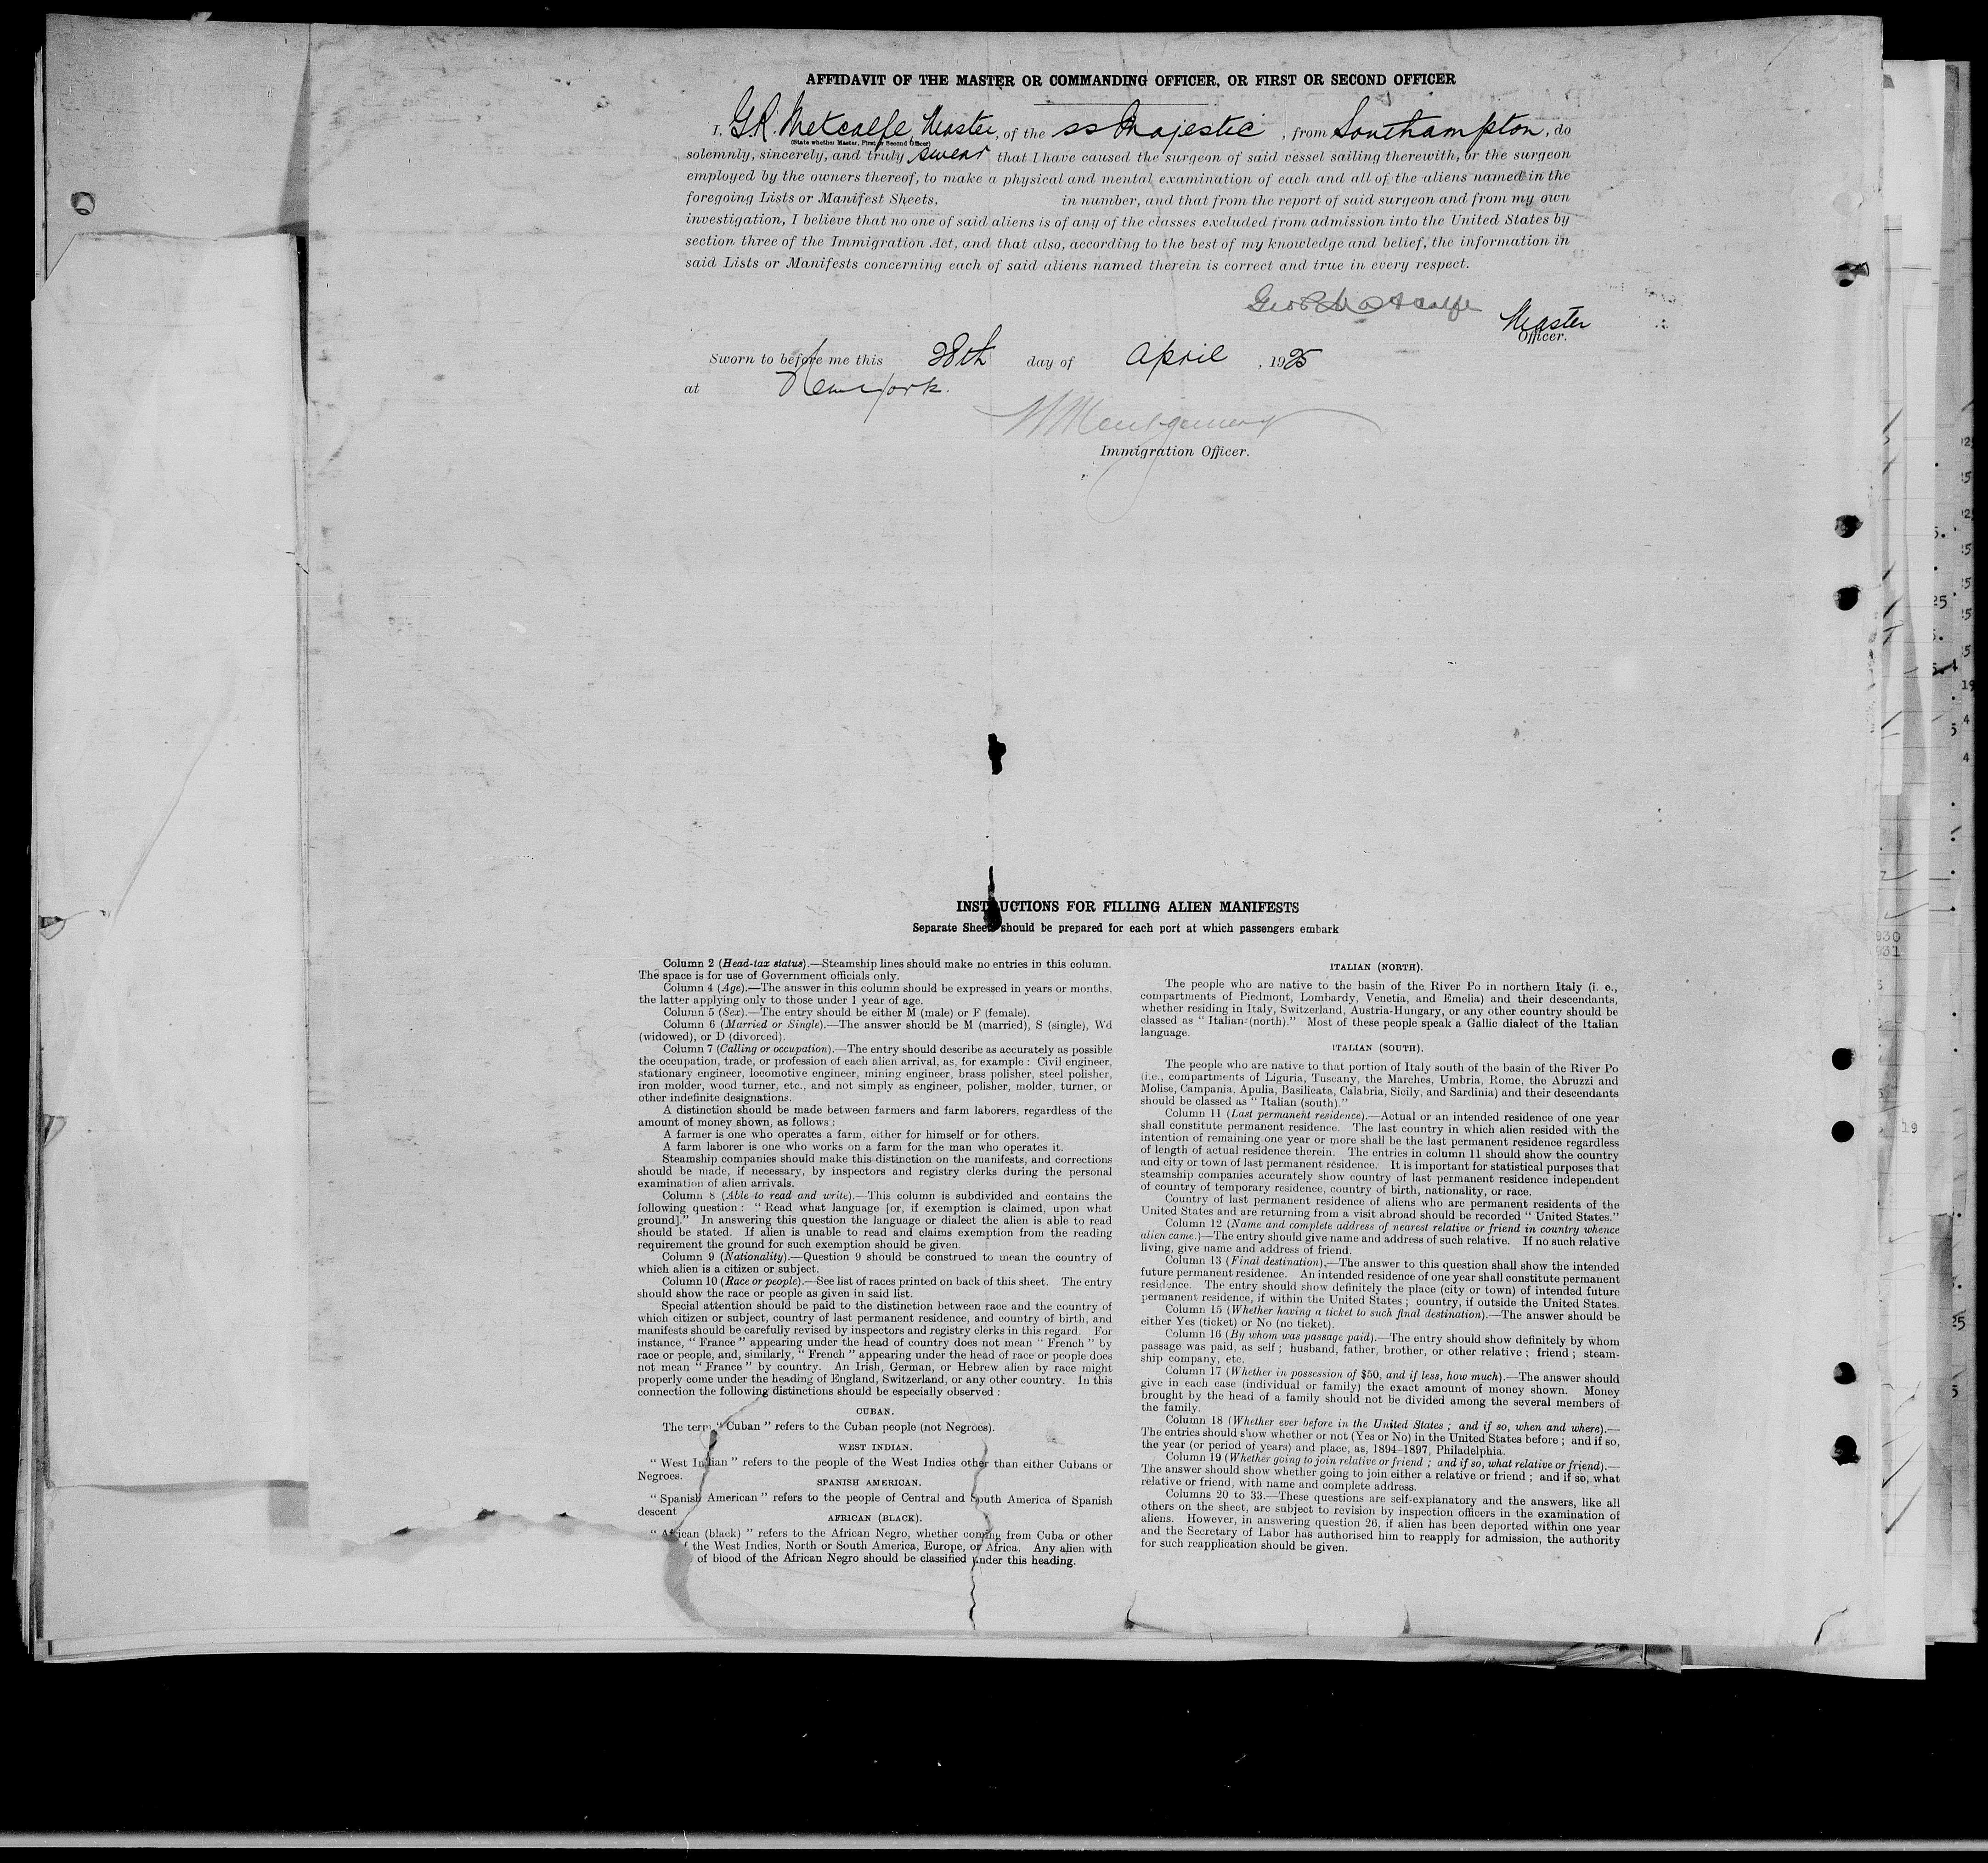 AFFIDAVIT OF THE MASTER OR COMMANDING OFFICER, OR FIRST OR SECOND OFFICER
I, G.R. Metcalfe, Master, of the ss Majestic, from Southampton, do
(State whether Master, First or Second Officer)
solemnly, sincerely, and truly swear that I have caused the surgeon of said vessel sailing therewith, or the surgeon
employed by the owners thereof, to make a physical and mental examination of each and all of the aliens named in the
foregoing Lists or Manifest Sheets. in number, and that from the report of said surgeon and from my own
investigation, I believe that no one of said aliens is of any of the classes excluded from admission into the United States by
section three of the Immigration Act, and that also, according to the best of my knowledge and belief, the information in
said Lists or Manifests concerning each of said aliens named therein is correct and true in every respect.
Geo R Metcalfe
Master
Officer.
Sworn to before me this 28th day of April, 1925
at New York.
Montgomery
Immigration Officer.
INSTRUCTIONS FOR FILLING ALIEN MANIFESTS
Separate Sheets should be prepared for each port at which passengers embark
Column 2 (Head-tax status).—Steamship lines should make no entries in this column.
The space is for use of Government officials only.
Column 4 (Age).—The answer in this column should be expressed in years or months,
the latter applying only to those under 1 year of age.
Column 5 (Sex).—The entry should be either M (male) or F (female).
Column 6 (Married or Single).—The answer should be M (married), S (single), Wd
(widowed), or D (divorced).
Column 7 (Calling or occupation).—The entry should describe as accurately as possible
the occupation, trade, or profession of each alien arrival, as, for example : Civil engineer,
stationary engineer, locomotive engineer, mining engineer, brass polisher, steel polisher,
iron molder, wood turner, etc., and not simply as engineer, polisher, molder, turner, or
other indefinite designations.
A distinction should be made between farmers and farm laborers, regardless of the
amount of money shown, as follows :
A farmer is one who operates a farm, either for himself or for others.
A farm laborer is one who works on a farm for the man who operates it.
Steamship companies should make this distinction on the manifests, and corrections
should be made, if necessary, by inspectors and registry clerks during the personal
examination of alien arrivals.
Column 8 (Able to read and write).—This column is subdivided and contains the
following question : " Read what language [or, if exemption is claimed, upon what
ground]." In answering this question the language or dialect the alien is able to read
should be stated. If alien is unable to read and claims exemption from the reading
requirement the ground for such exemption should be given.
Column 9 (Nationality).—Question 9 should be construed to mean the country of
which alien is a citizen or subject.
Column 10 (Race or people).—See list of races printed on back of this sheet. The entry
should show the race or people as given in said list.
Special attention should be paid to the distinction between race and the country of
which citizen or subject, country of last permanent residence, and country of birth, and
manifests should be carefully revised by inspectors and registry clerks in this regard. For
instance, " France " appearing under the head of country does not mean " French " by
race or people, and, similarly, " French " appearing under the head of race or people does
not mean " France " by country. An Irish, German, or Hebrew alien by race might
properly come under the heading of England, Switzerland, or any other country. In this
connection the following distinctions should be especially observed :
CUBAN.
The term " Cuban " refers to the Cuban people (not Negroes).
WEST INDIAN.
" West Indian " refers to the people of the West Indies other than either Cubans or
Negroes.
SPANISH AMERICAN.
" Spanish American " refers to the people of Central and South America of Spanish
descent
AFRICAN (BLACK).
" African (black) " refers to the African Negro, whether coming from Cuba or other
the West Indies, North or South America, Europe, or Africa. Any alien with
of blood of the African Negro should be classified under this heading.
ITALIAN (NORTH).
The people who are native to the basin of the River Po in northern Italy (i. e.,
compartments of Piedmont, Lombardy, Venetia, and Emelia) and their descendants,
whether residing in Italy, Switzerland, Austria-Hungary, or any other country should be
classed as " Italian (north)." Most of these people speak a Gallic dialect of the Italian
language.
ITALIAN (SOUTH).
The people who are native to that portion of Italy south of the basin of the River Po
(i.e., compartments of Liguria, Tuscany, the Marches, Umbria, Rome, the Abruzzi and
Molise, Campania, Apulia, Basilicata, Calabria, Sicily, and Sardinia) and their descendants
should be classed as " Italian (south)."
Column 11 (Last permanent residence).—Actual or an intended residence of one year
shall constitute permanent residence. The last country in which alien resided with the
intention of remaining one year or more shall be the last permanent residence regardless
of length of actual residence therein. The entries in column 11 should show the country
and city or town of last permanent residence. It is important for statistical purposes that
steamship companies accurately show country of last permanent residence independent
of country of temporary residence, country of birth, nationality, or race.
Country of last permanent residence of aliens who are permanent residents of the
United States and are returning from a visit abroad should be recorded " United States."
Column 12 (Name and complete address of nearest relative or friend in country whence
alien came.)—The entry should give name and address of such relative. If no such relative
living, give name and address of friend.
Column 13 (Final destination).—The answer to this question shall show the intended
future permanent residence. An intended residence of one year shall constitute permanent
residence. The entry should show definitely the place (city or town) of intended future
permanent residence, if within the United States ; country, if outside the United States.
Column 15 (Whether having a ticket to such final destination).—The answer should be
either Yes (ticket) or No (no ticket).
Column 16 (By whom was passage paid).—The entry should show definitely by whom
passage was paid, as self ; husband, father, brother, or other relative ; friend ; steam-
ship company, etc.
Column 17 (Whether in possession of $50, and if less, how much).—The answer should
give in each case (individual or family) the exact amount of money shown. Money
brought by the head of a family should not be divided among the several members of
the family.
Column 18 (Whether ever before in the United States ; and if so, when and where).—
The entries should show whether or not (Yes or No) in the United States before ; and if so,
the year (or period of years) and place, as, 1894–1897, Philadelphia.
Column 19 (Whether going to join relative or friend ; and if so, what relative or friend).—
The answer should show whether going to join either a relative or friend ; and if so, what
relative or friend, with name and complete address.
Columns 20 to 33.—These questions are self-explanatory and the answers, like all
others on the sheet, are subject to revision by inspection officers in the examination of
aliens. However, in answering question 26, if alien has been deported within one year
and the Secretary of Labor has authorised him to reapply for admission, the authority
for such reapplication should be given.